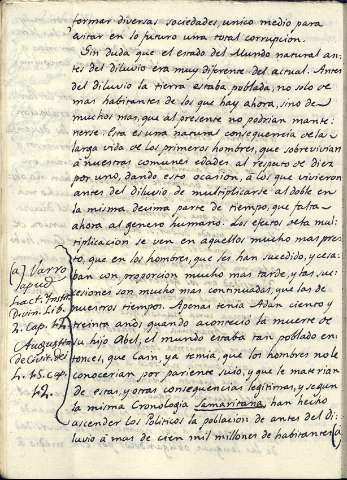 formar diversas sociedades, unico medio para
evitar en lo futuro una total corrupcion.
Sin duda que el estado del Mundo natural an-
tes del diluvio era muy diferente del actual. Antes
del diluvio la tierra estaba poblada, no solo de
mas habitantes de los que hay ahora, sino de
muchos mas, que al presente no podrian mante-
nerse. Esta es una natural consequencia de la
larga vida de los primeros hombres, que sobrevivian
à nuestras comunes edades al respecto de diez
por uno, dando esto ocasion, à los que vivieron
antes del diluvio de multiplicarse al doble en
la misma decima parte de tiempo, que
ahora al genero humano. Los efectos de la mul-
tiplicacion se ven en aquellos mucho mas pres-
to, que en los hombres, que les han sucedido, y
ban con proporcion mucho mas tarde, y las suc-
cesiones son mucho mas continuadas, que las de
nuestros tiempos. Apenas tenia Adàn ciento y
treinta años quando acontecio la muerte de
su hijo Abel, el mundo estaba tan poblado en-
tonces, que Cain, ya temia, que los hombres no le
conocerian por pariente suio, y que le matarian
de estas, y otras consequencias legitimas, y segun
la misma Cronologia Samaritana han hecho
ascender los Politicos la poblacion de antes del di-
luvio à mas de cien mil millones de habitantes (a)
(a) Varro
apud
Lact. Instit.
Divin. Lib.
2. cap.
Augustin.
de Civit. Dei
L. 15. cap.
12.